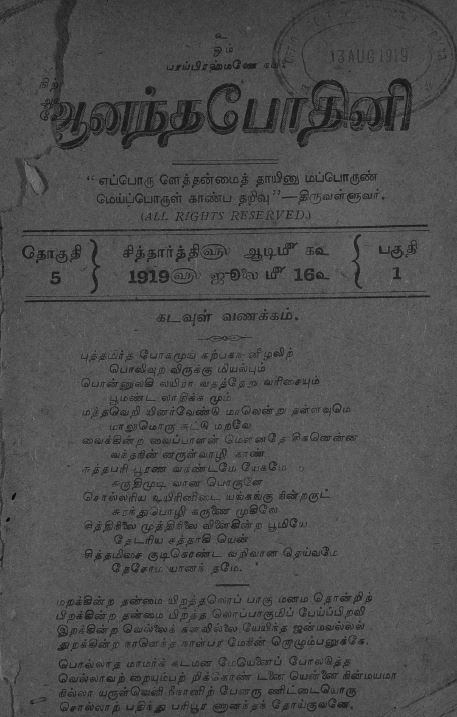 உ
ஓம்
பரப்பிரஹ்மணே நம
13 AUG 1919
ஆனந்தபோதினி
“ எப்பொரு ளெத்தன்மைத் தாயினு மப்பொருண்
மெய்ப்பொருள் காண்ப தறிவு ”—திருவள்ளுவர்.
(ALL RIGHTS RESERVED.)
தொகுதி
5
சித்தார்த்தி௵ ஆடிமீ கஉ
1919௵ ஜூலை மீ 16உ
பகுதி
1
கடவுள் வணக்கம்.
புத்தமிர்த போகமுய கற்பகா னீழலிற்
பொலிவுற விருக்கு மியல்பும்
பொன்னுலகி லயிரா வதத்தேறு வரிசையும்
பூமண்ட லாதிக்க மும்
மத்தவெறி யினர்வேண்டு மாலென்று தள்ளவுமெ
மாலுமொரு சுட்டு மறவே
வைக்கின்ற வைப்பாளன் மௌனதே சிகனென்ன
வந்தநின் னருள்வாழி காண்
சுத்தபரி பூரண வகண்டமே யேகமே
சுருதிமுடி வான பொருளே
சொல்லரிய உயிரினிடை யங்கங்கு நின்றருட்
சுரந்துபொழி கருணை முகிலே
சித்திநிலை முத்திநிலை விளைகின்ற பூமியே
தேடரிய சத்தாகி யென்
சித்தமிசை குடிகொண்ட வறிவான தெய்வமே
தேசோம யானந் தமே.
மறக்கின்ற தன்மை யிறத்தலொப் பாகு மனம தொன்றிற்
பிறக்கின்ற தன்மை பிறத்த லொப்பாகுமிப் பேய்ப்பிறவி
இறக்கின்ற வெல்லைக் களவில்லை யேயிந்த ஜன்மவல்லல்
துறக்கின்ற நாளெந்த நாள்பர மேநின் றொழும்பனுக்கே.
பொல்லாத மாமர்க் கடமன மேயெனைப் போலடுத்த
வெல்லாவற் றையும்பற் றிக்கொண் டனை யென்னை நின்மயமா
நில்லா யருள்வெளி நீநானிற் பேனரு ணிட்டையொரு
சொல்லாற் பதிந்து பரிபூர ணானந்தந் தோய்குவனே.